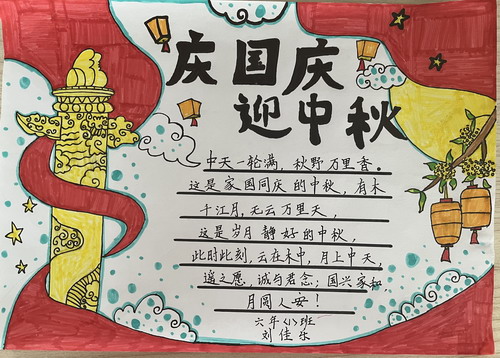 庆国庆
迎中秋
中天一轮满，秋野万里香。
这是家国同庆的中秋，有水
千江月，无云万里天，
这是岁月静好的中秋，
此时此刻，云在水中，月上中天
遥之愿，诚与君念；国兴家和
月圆人安！
六年（1）班
刘佳乐